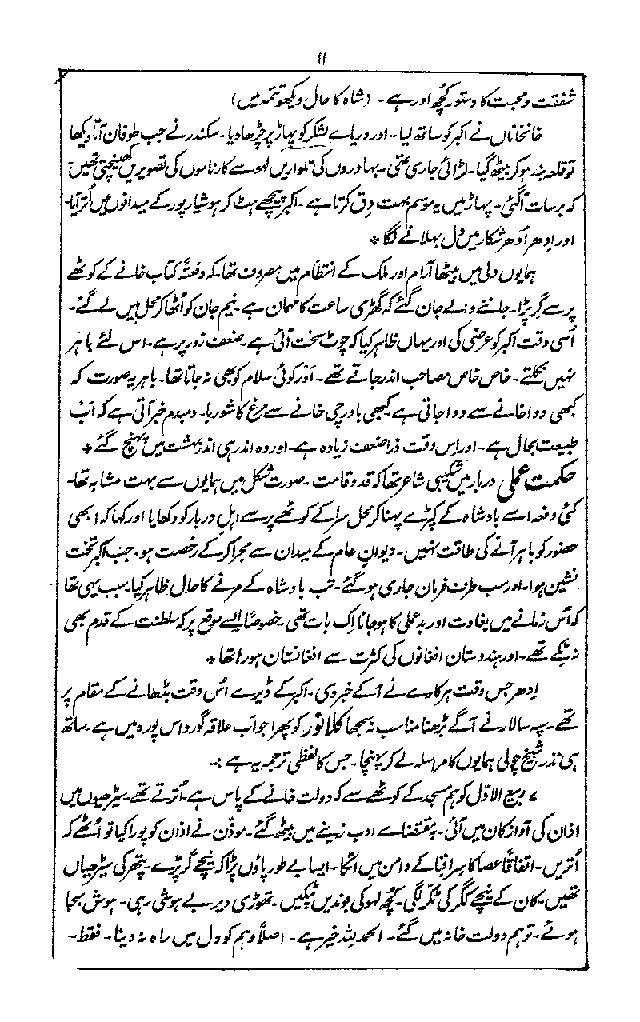 ۱۱
شفقت و محبت کا دستور کچھ اور ہے ۔ (شاہ کا حال دیکھو تتمہ میں)
خانخاناں نے اکبر کو ساتھ لیا ۔ اور دریائے لشکر کو پہاڑ پر چڑھا دیا ۔ سکندر نے جب طوفان آتا دیکھا
تو قلعہ بند ہو کر بیٹھ گیا ۔ لڑائی جاری تھی ۔ بہادروں کی تلواریں لہو سے کارناموں کی تصویریں کھینچتی تھیں
کہ برسات آ گئی ۔ پہاڑ میں یہ موسم بہت دق کرتا ہے ۔ اکبر پیچھے ہٹ کر ہوشیار پور کے میدانوں میں اُتر آیا ۔
اور اِدھر اُدھر شکار میں دل بہلانے لگا *
ہمایوں دلی میں بیٹھا آرام اور ملک کے انتظام میں مصروف تھا ۔ کہ دفعتہً کتاب خانے کے کوٹھے
پر سے گر پڑا ۔ جاننے والے جان گئے کہ گھڑی ساعت کا مہمان ہے ۔ نیم جان کو اُٹھا کر محل میں لے گئے ۔
اُسی وقت اکبر کو عرضی کی اور یہاں ظاہر کیا کہ چوٹ سخت آئی ہے ۔ ضعف زور پر ہے ۔ اس لئے باہر
نہیں نکلتے ۔ خاص خاص مصاحب اندر جاتے تھے ۔ اَور کوئی سلام کو بھی نہ جاتا تھا ۔ باہر یہ صورت کہ
کبھی دوا خانے سے دوا جاتی ہے کبھی باورچی خانے سے مرغ کا شوربا ۔ دمبدم خبر آتی ہے کہ اَب
طبیعت بحال ہے ۔ اور اِس وقت ذرا ضعف زیادہ ہے ۔ اور وہ اندر ہی اندر بہشت میں پہنچ گئے *
حکمت عملی دربار میں شکیبی شاعر تھا کہ قد و قامت ۔ صورت شکل میں ہمایوں سے بہت مشابہ تھا ۔
کئی دفعہ اُسے بادشاہ کے کپڑے پہنا کر محل سرا کے کوٹھے پر سے اہل دربار کو دکھایا اور کہا کہ ابھی
حضور کو باہر آنے کی طاقت نہیں ۔ دیوانِ عام کے میدان سے مجرا کر کے رخصت ہو ۔ جب اکبر تخت
نشین ہوا ۔ اور سب طرف فرمان جاری ہو گئے ۔ تب بادشاہ کے مرنے کا حال ظاہر کیا ۔ سبب یہی تھا
کہ اُس زمانے میں بغاوت اور بدعملی کا ہو جانا اِک بات تھی خصوصاً ایسے موقع پر کہ سلطنت کے قدم بھی
نہ ٹکے تھے ۔ اور ہندوستان افغانوں کی کثرت سے افغانستان ہو رہا تھا *
اِدھر جس وقت ہرکارے نے آ کے خبر دی ۔ اکبر کے ڈیرے اُس وقت بٹھانے کے مقام پر
تھے ۔ سپہ سالار نے آگے بڑھنا مناسب نہ سمجھا کلانور کو پھرا جو اب علاقہ گورداس پور میں ہے ۔ ساتھ
ہی نذر شیخ چولی ہمایوں کا مراسلہ لے کر پہنچا ۔ جس کا لفظی ترجمہ یہ ہے :۔
۷ ربیع الاوّل کو ہم مسجد کے کوٹھے سے کہ دولت خانے کے پاس ہے ۔ اُترتے تھے ۔ سیڑھیوں میں
اذان کی آواز کان میں آئی ۔ بمقتضائے ادب زینے میں بیٹھ گئے ۔ موذن نے اذان کو پورا کیا تو اُٹھے کہ
اُتریں ۔ اتفاقاً عصا کا سرا قبا کے دامن میں اٹکا ۔ ایسا بے طور پاؤں پڑا کہ نیچے گر پڑے ۔ پتھر کی سیڑھیاں
تھیں ۔ کان کے نیچے کگر کی ٹکر لگی ۔ کچھ لہو کی بوندیں ٹپکیں ۔ تھوڑی دیر بے ہوشی رہی ۔ ہوش بجا
ہوئے ۔ تو ہم دولت خانہ میں گئے ۔ الحمد للہ خیر ہے ۔ اصلاً وہم کو دل میں راہ نہ دینا ۔ فقط ۔